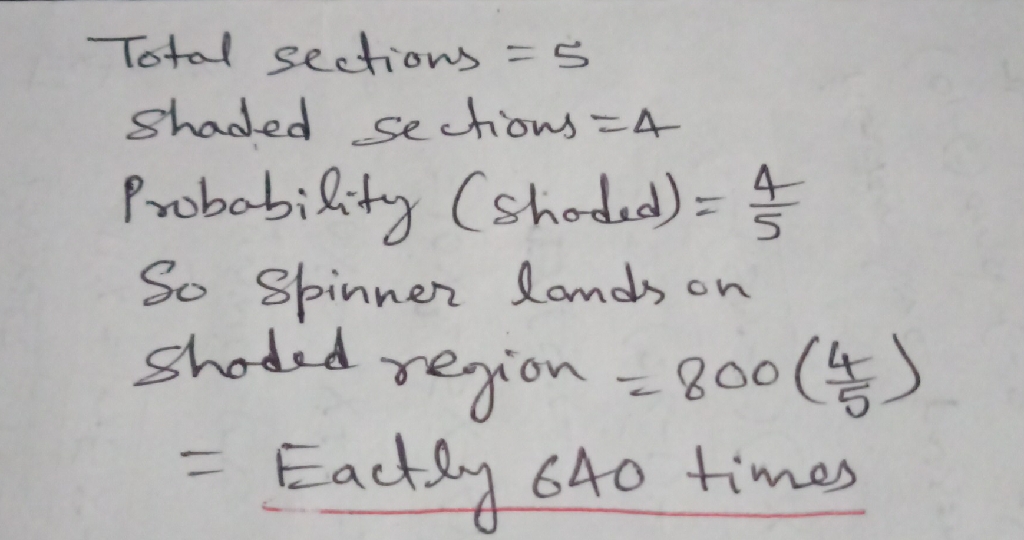 Total sections = 5
Shaded sections = 4
Probability (Shaded) = 4/5
So Spinner lands on
Shaded region = 800 (4/5)
= Eactly 640 times